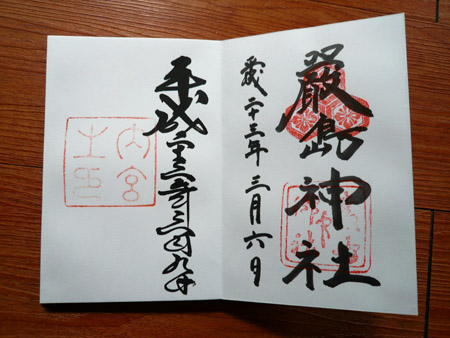 嚴島神社
平成二十三年三月六日
平成二十三年三月九日
内宮
之印